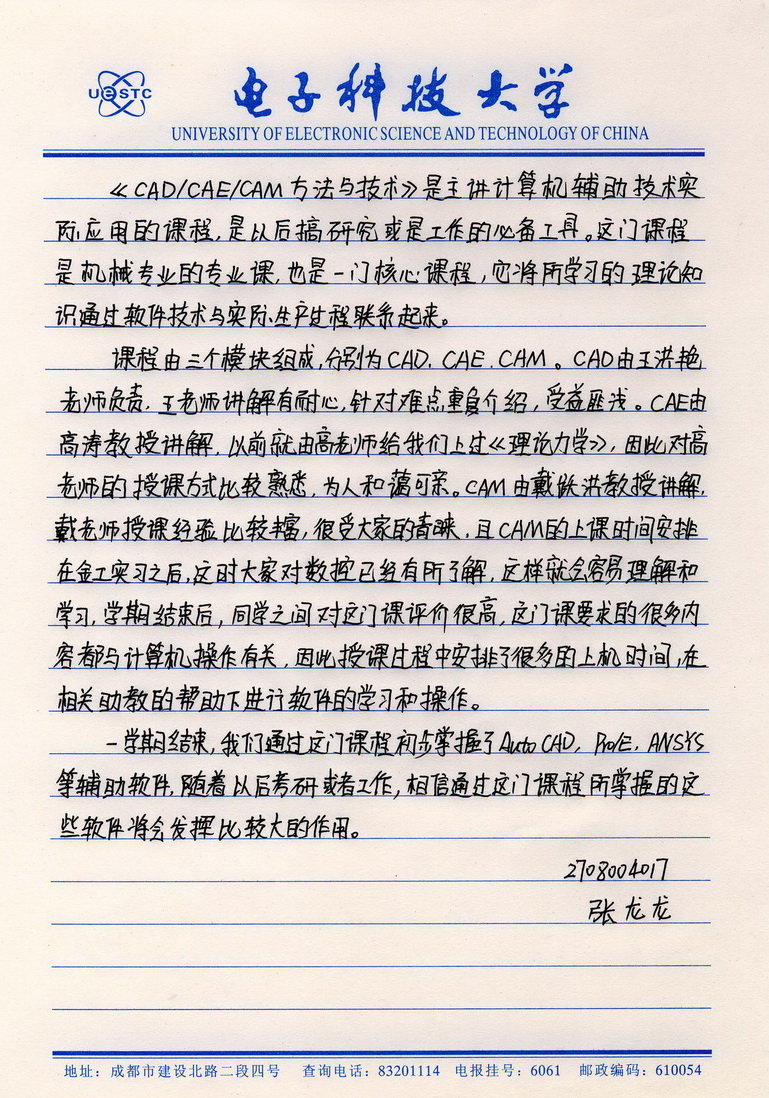 UESTC
电子科技大学
UNIVERSITY OF ELECTRONIC SCIENCE AND TECHNOLOGY OF CHINA
《CAD/CAE/CAM方法与技术》是主讲计算机辅助技术实
际应用的课程,是以后搞研究或是工作的必备工具。这门课程
是机械专业的专业课,也是一门核心课程,它将所学习的理论知
识通过软件技术与实际生产过程联系起来。
课程由三个模块组成,分别为CAD、CAE、CAM。CAD由王洪艳
老师负责,王老师讲解有耐心,针对难点重复介绍,受益匪浅。CAE由
高涛教授讲解,以前就由高老师给我们上过《理论力学》,因此对高
老师的授课方式比较熟悉,为人和蔼可亲。CAM由戴跃洪教授讲解,
戴老师授课经验比较丰富,很受大家的青睐,且CAM的上课时间安排
在金工实习之后,这时大家对数控已经有所了解,这样就会容易理解和
学习,学期结束后,同学之间对这门课评价很高,这门课要求的很多内
容都与计算机操作有关,因此授课过程中安排了很多的上机时间,在
相关助教的帮助下进行软件的学习和操作。
一学期结束,我们通过这门课程初步掌握了Auto CAD、Pro/E、ANSYS
等辅助软件,随着以后考研或者工作,相信通过这门课程所学握的这
些软件将会发挥比较大的作用。
2708004017
张龙龙
地址:成都市建设北路二段四号 查询电话:83201114 电报挂号:6061 邮政编码:610054